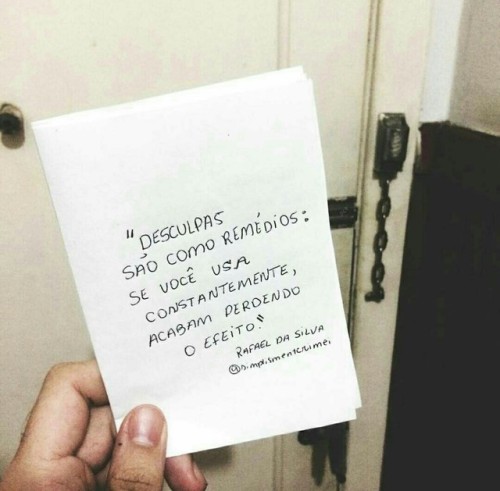 "DESCULPAS
SÃO COMO REMÉDIOS:
SE VOCÊ USA
CONSTANTEMENTE,
ACABAM PERDENDO
O EFEITO."
RAFAEL DA SILVA
@simplismenterimei